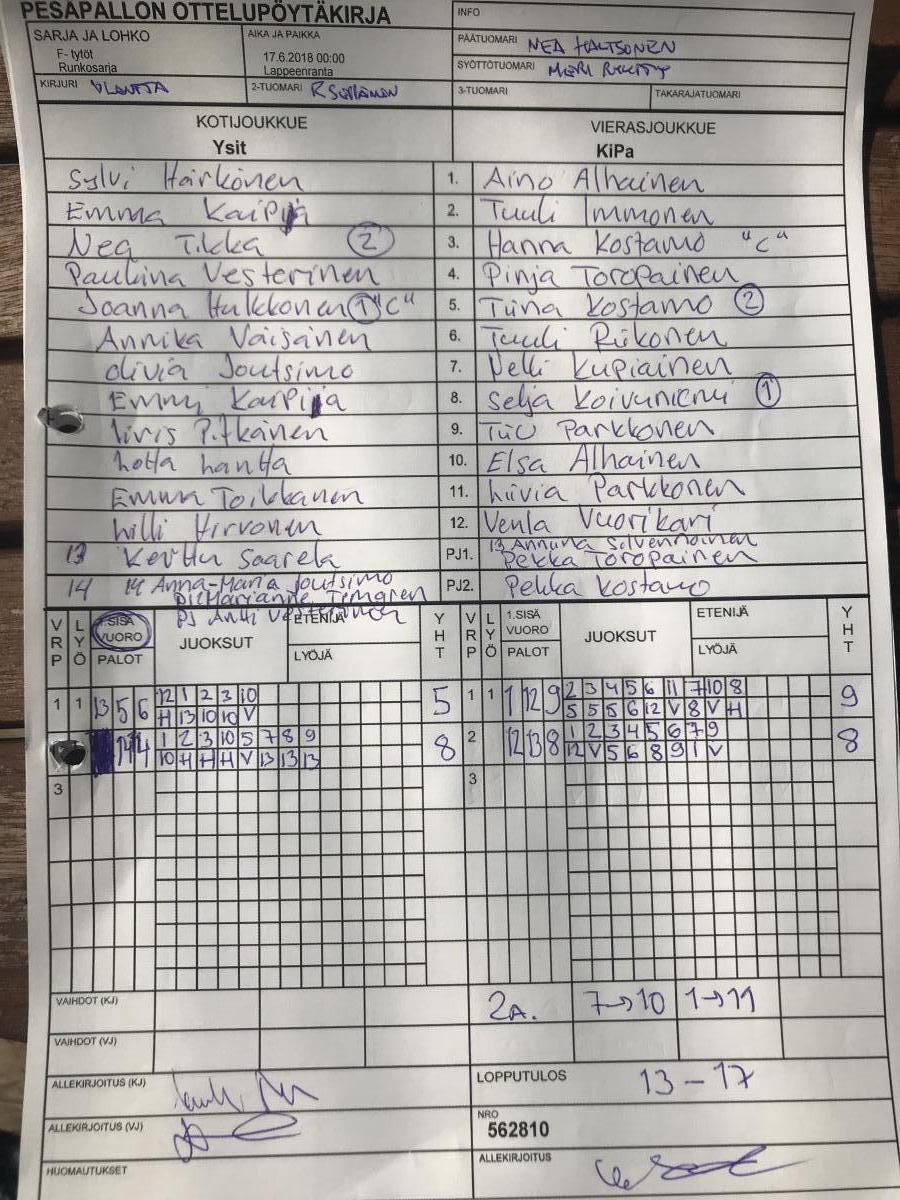 PESÄPALLON OTTELUPÖYTÄKIRJA
INFO
SARJA JA LOHKO
F- tytöt
Runkosarja
AIKA JA PAIKKA
17.6.2018 00:00
Lappeenranta
PÄÄTUOMARI NEA HALTSONEN
SYÖTTÖTUOMARI
KIRJURI
2-TUOMARI
3-TUOMARI
TAKARAJATUOMARI
KOTIJOUKKUE
Ysit
VIERASJOUKKUE
KiPa
Sylvi Härkönen 1. Aino Alhainen
Emma Kaipia 2. Tuuli Immonen
Nea Tikka 2 3. Hanna Kostamo "C"
Pauliina Vesterinen 4. Pinja Toropainen
Joanna Hulkkonen 1 "C" 5. Tiina Kostamo 2
Annika Väisänen 6. Tuuli Riikonen
Olivia Joutsimo 7. Nelli Kupiainen
Emmi Kaipia 8. Selja Koivuniemi 1
Iiris Pitkänen 9. Tiu Parkkonen
Lotta Lantta 10. Elsa Alhainen
Emma Toikkanen 11. Liivia Parkkonen
Lilli Hirvonen 12. Venla Vuorikari
13 Kerttu Saarela PJ1. 13 Annuna Silvennoinen
Pekka Toropainen
14 14 Anna-Maria Joutsimo PJ2. Pekka Kostamo
PJ Antti Vesterinen
VRP LYÖ 1.SISÄ VUORO PALOT JUOKSUT ETENIJÄ LYÖJÄ YHT
VRP LYÖ 1.SISÄ VUORO PALOT JUOKSUT ETENIJÄ LYÖJÄ YHT
1 1 13 5 6 12 1 2 3 10 5
H 13 10 10 V
1 1 1 12 9 2 3 4 5 6 11 7 10 8 9
5 5 5 6 12 V 8 V H
14 4 1 2 3 10 5 7 8 9 8
10 H H H V 13 13 13
2 12 13 8 1 2 3 4 5 6 7 9 8
12 V 5 6 8 9 1 V
3
3
VAIHDOT (KJ) 2A. 7→10 1→11
VAIHDOT (VJ)
ALLEKIRJOITUS (KJ)
LOPPUTULOS 13 - 17
ALLEKIRJOITUS (VJ)
NRO
562810
HUOMAUTUKSET
ALLEKIRJOITUS